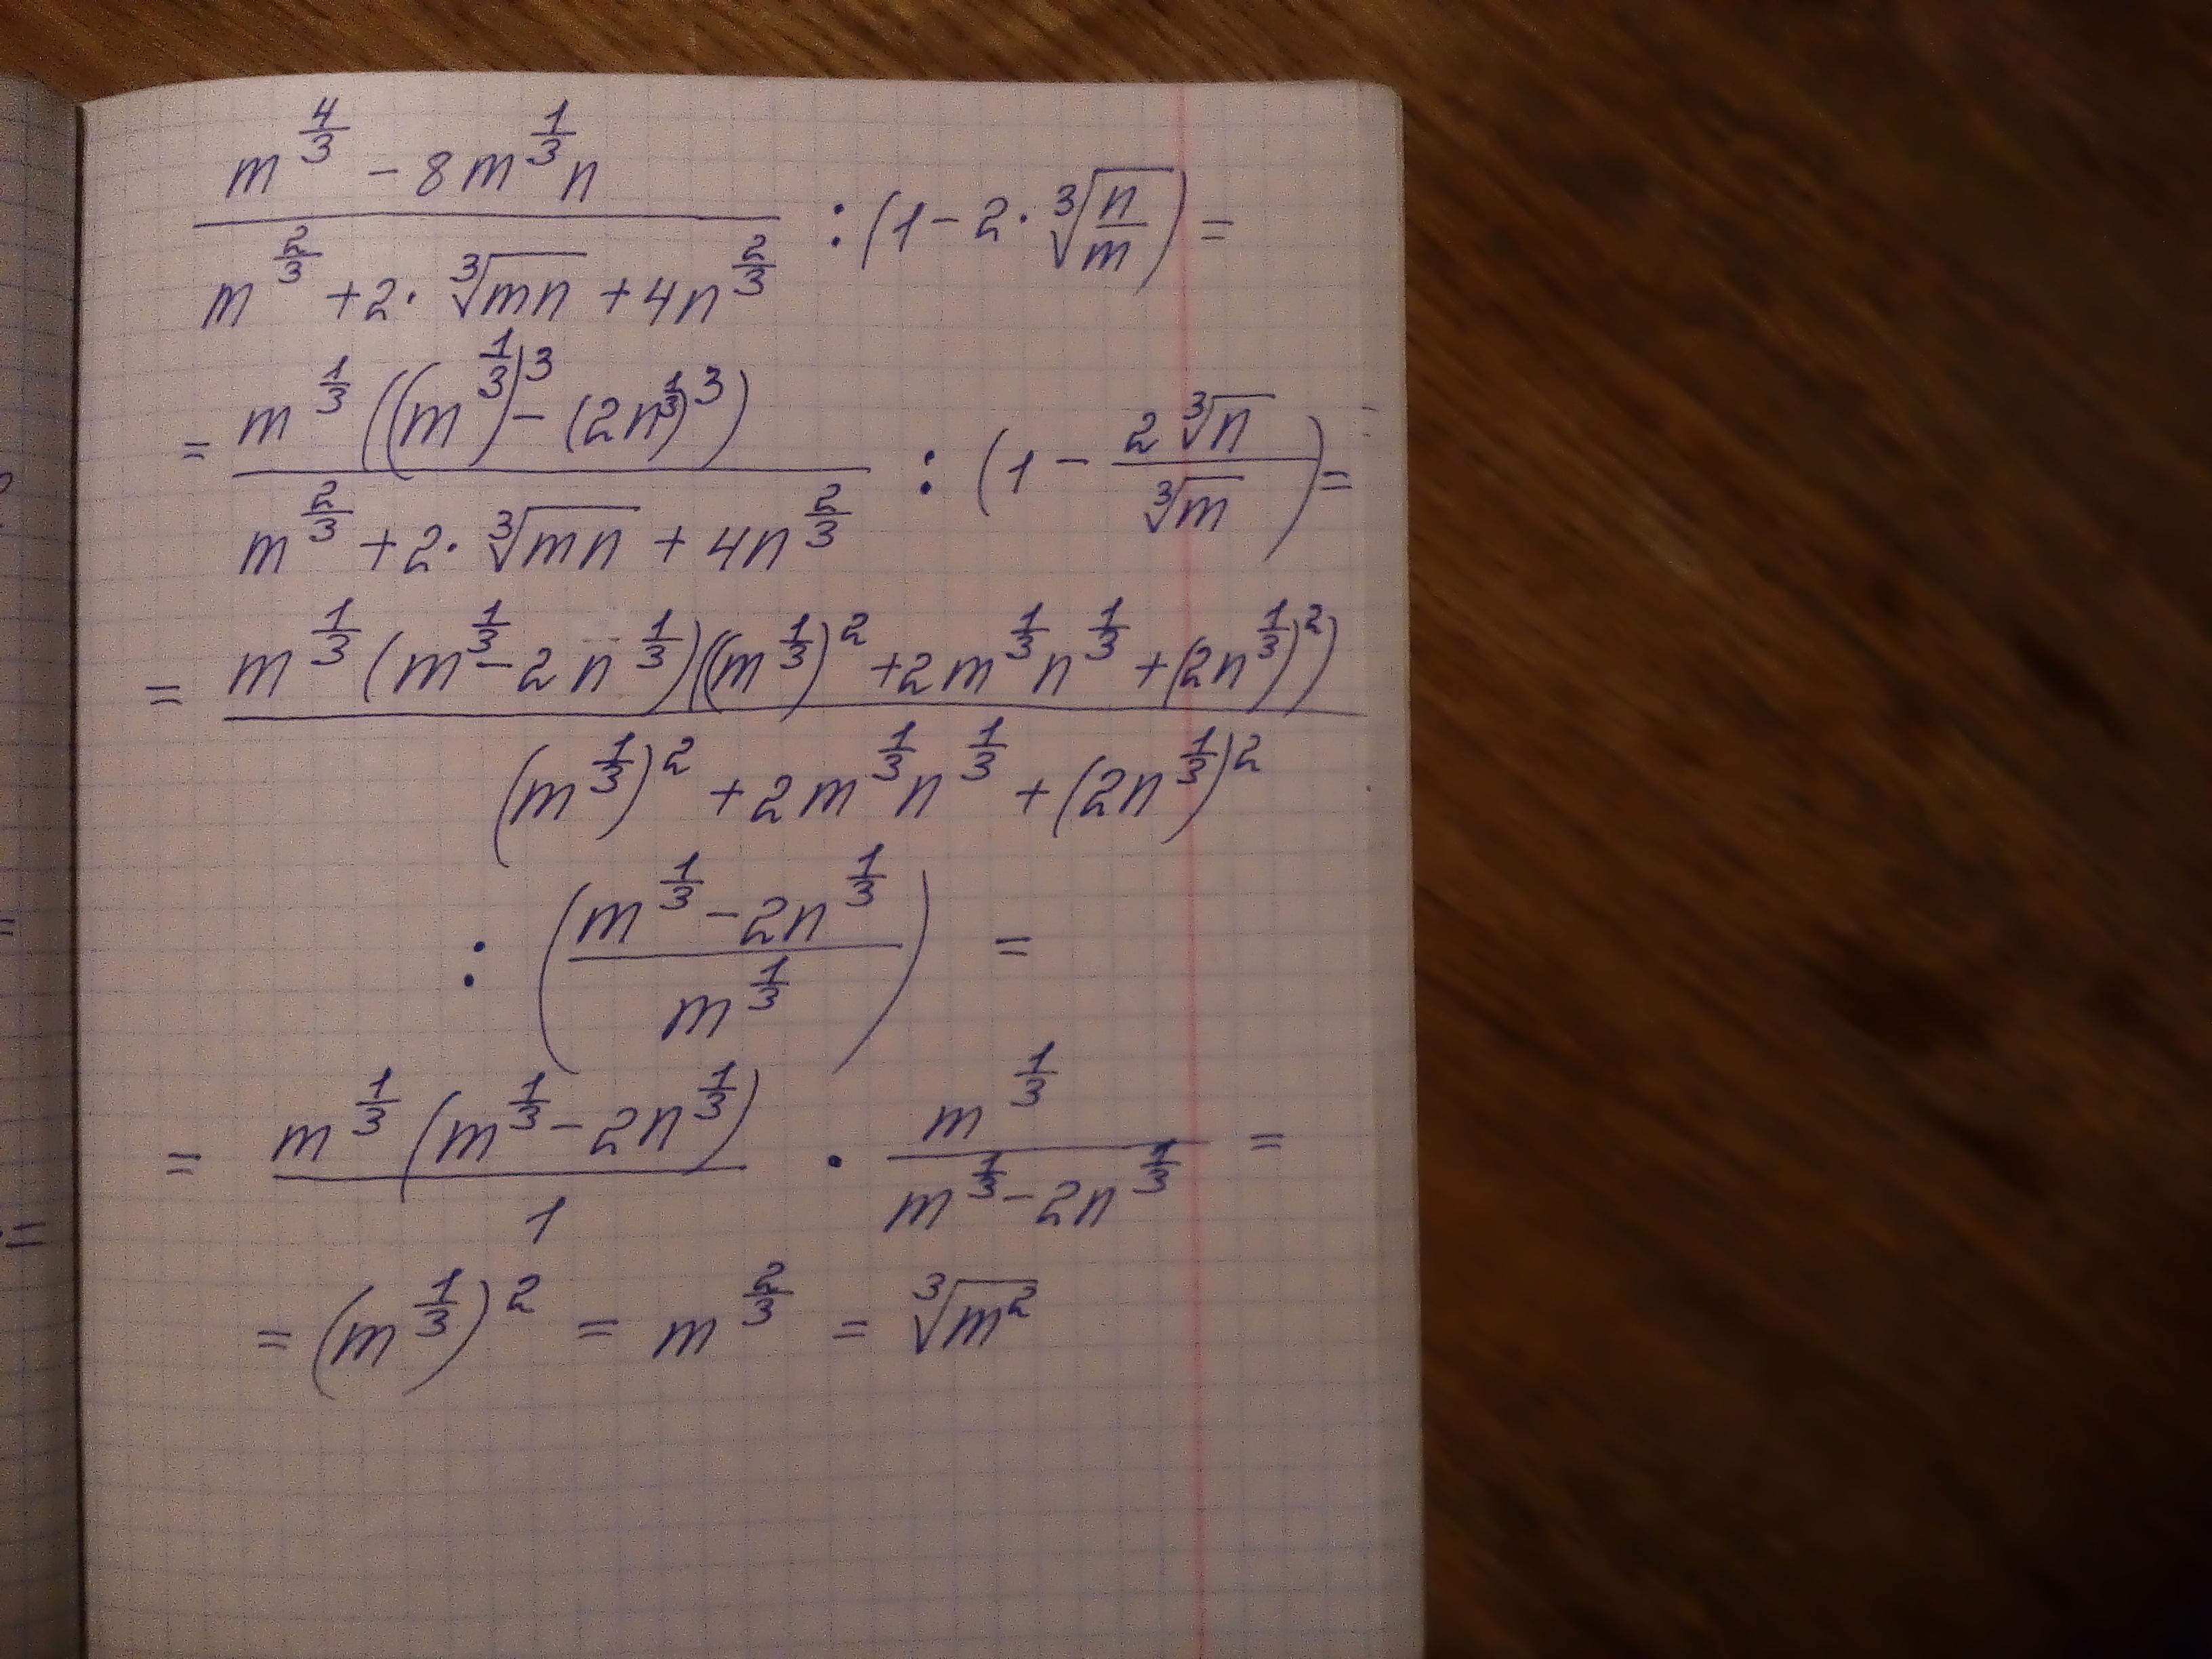 \frac{m^{\frac{4}{3}} - 8m^{\frac{1}{3}}n}{m^{\frac{2}{3}} + 2 \cdot \sqrt[3]{mn} + 4n^{\frac{2}{3}}} : (1 - 2 \cdot \sqrt[3]{\frac{n}{m}}) =
= \frac{m^{\frac{1}{3}}((m^{\frac{1}{3}})^3 - (2n^{\frac{1}{3}})^3)}{m^{\frac{2}{3}} + 2 \cdot \sqrt[3]{mn} + 4n^{\frac{2}{3}}} : (1 - \frac{2\sqrt[3]{n}}{\sqrt[3]{m}}) =
= \frac{m^{\frac{1}{3}}(m^{\frac{1}{3}} - 2n^{\frac{1}{3}})((m^{\frac{1}{3}})^2 + 2m^{\frac{1}{3}}n^{\frac{1}{3}} + (2n^{\frac{1}{3}})^2)}{(m^{\frac{1}{3}})^2 + 2m^{\frac{1}{3}}n^{\frac{1}{3}} + (2n^{\frac{1}{3}})^2}
: (\frac{m^{\frac{1}{3}} - 2n^{\frac{1}{3}}}{m^{\frac{1}{3}}}) =
= \frac{m^{\frac{1}{3}}(m^{\frac{1}{3}} - 2n^{\frac{1}{3}})}{1} \cdot \frac{m^{\frac{1}{3}}}{m^{\frac{1}{3}} - 2n^{\frac{1}{3}}} =
= (m^{\frac{1}{3}})^2 = m^{\frac{2}{3}} = \sqrt[3]{m^2}